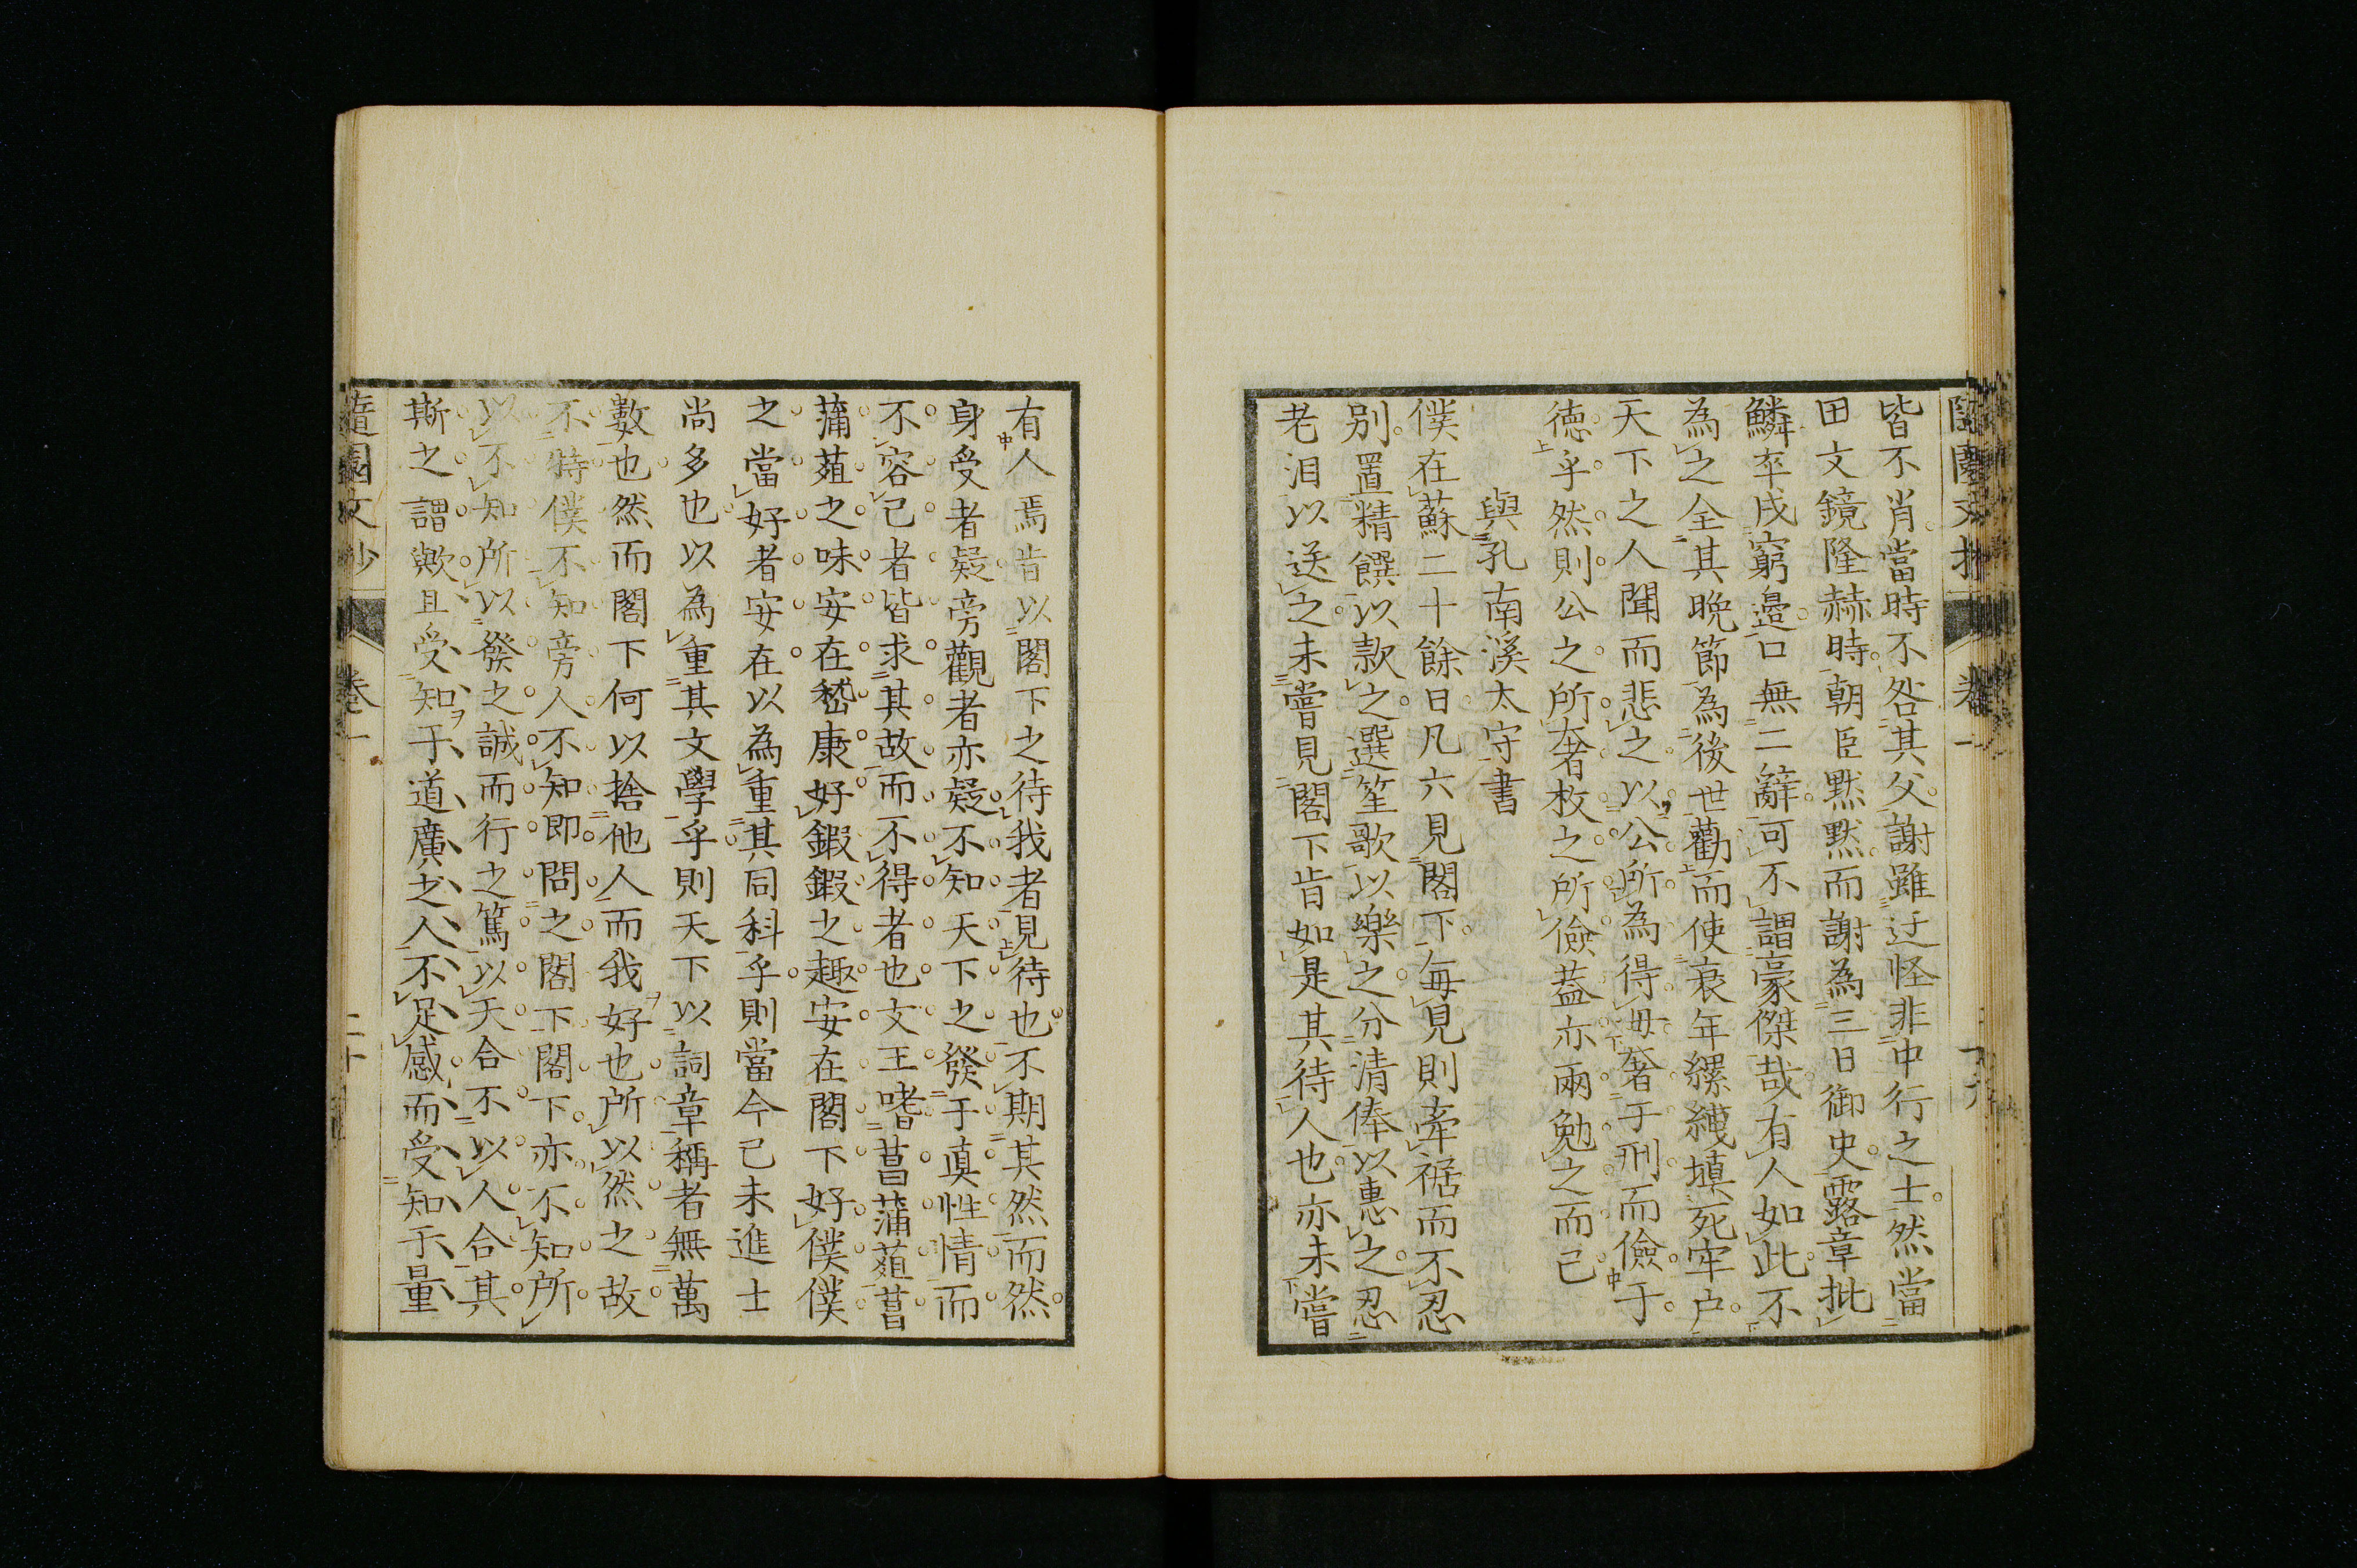 皆不肖當時不咎其父謝雖迂怪非中行之士然當
田文鏡隆赫時朝臣默默而謝為三日御史露章批
鱗卒戍窮邉口無二辭可不謂豪傑哉有人如此不
為之全其晚節為後世勸而使衰年縲絏填死牢户
天下之人聞而悲之以公所為得毋奢于刑而儉于
徳乎然則公之所奢枚之所儉葢亦兩勉之而已
與孔南溪太守書
僕在蘇二十餘日凡六見閣下每見則牽裾而不忍
别置精饌以款之選笙歌以樂之分清俸以惠之忍
老泪以送之未嘗見閣下肯如是其待人也亦未嘗
有人焉肯以閣下之待我者見待也不期其然而然
身受者疑旁觀者亦疑不知天下之發于真性情而
不容已者皆求其故而不得者也文王嗜菖蒲葅菖
蒲葅之味安在嵇康好鍜鍜之趣安在閣下好僕僕
之當好者安在以為重其同科乎則當今己未進士
尚多也以為重其文學乎則天下以詞章稱者無萬
數也然而閣下何以捨他人而我好也所以然之故
不特僕不知旁人不知即問之閣下閣下亦不知所
以不知所以發之誠而行之篤以天合不以人合其
斯之謂歟且受知于道廣之人不足感而受知于量
隨園文抄 卷一